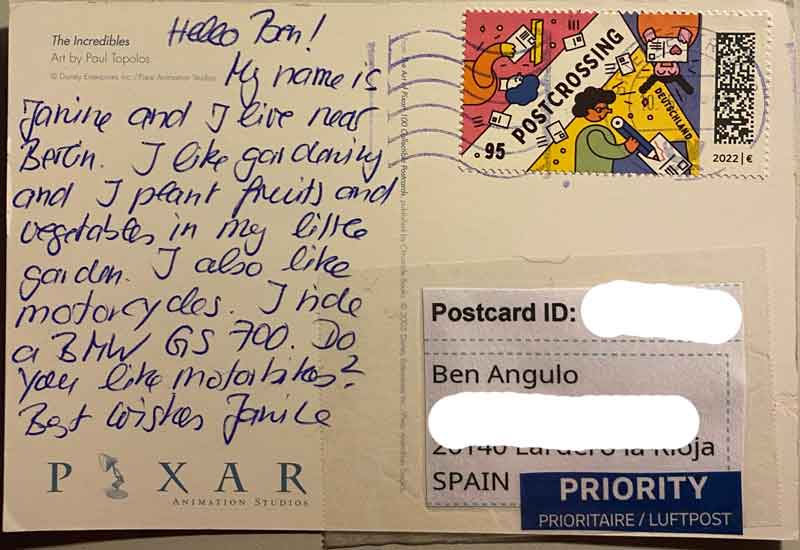 The Incredibles
Art by Paul Topolos
© Disney Enterprises Inc. / Pixar Animation Studios
Hello Ben!
My name is
Janine and I live near
Berlin. I like gardening
and I plant fruits and
vegetables in my little
garden. I also like
motorcycles. I ride
a BMW GS 700. Do
you like motorbikes?
Best wishes Janine
PIXAR
ANIMATION STUDIOS
100 Collectible Postcards, published by Chronicle Books.
POSTCROSSING
DEUTSCHLAND
95
2022 | €
Postcard ID:
Ben Angulo
Lardero la Rioja
SPAIN
PRIORITY
PRIORITAIRE / LUFTPOST